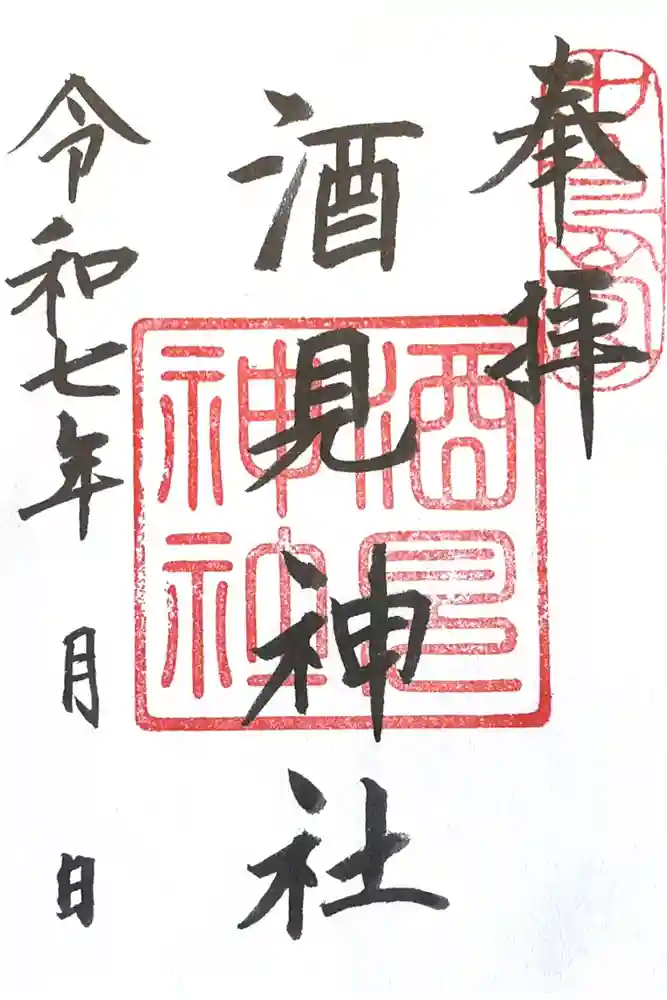 奉拝
酒見神社
令和七年 月 日
酒見
神社